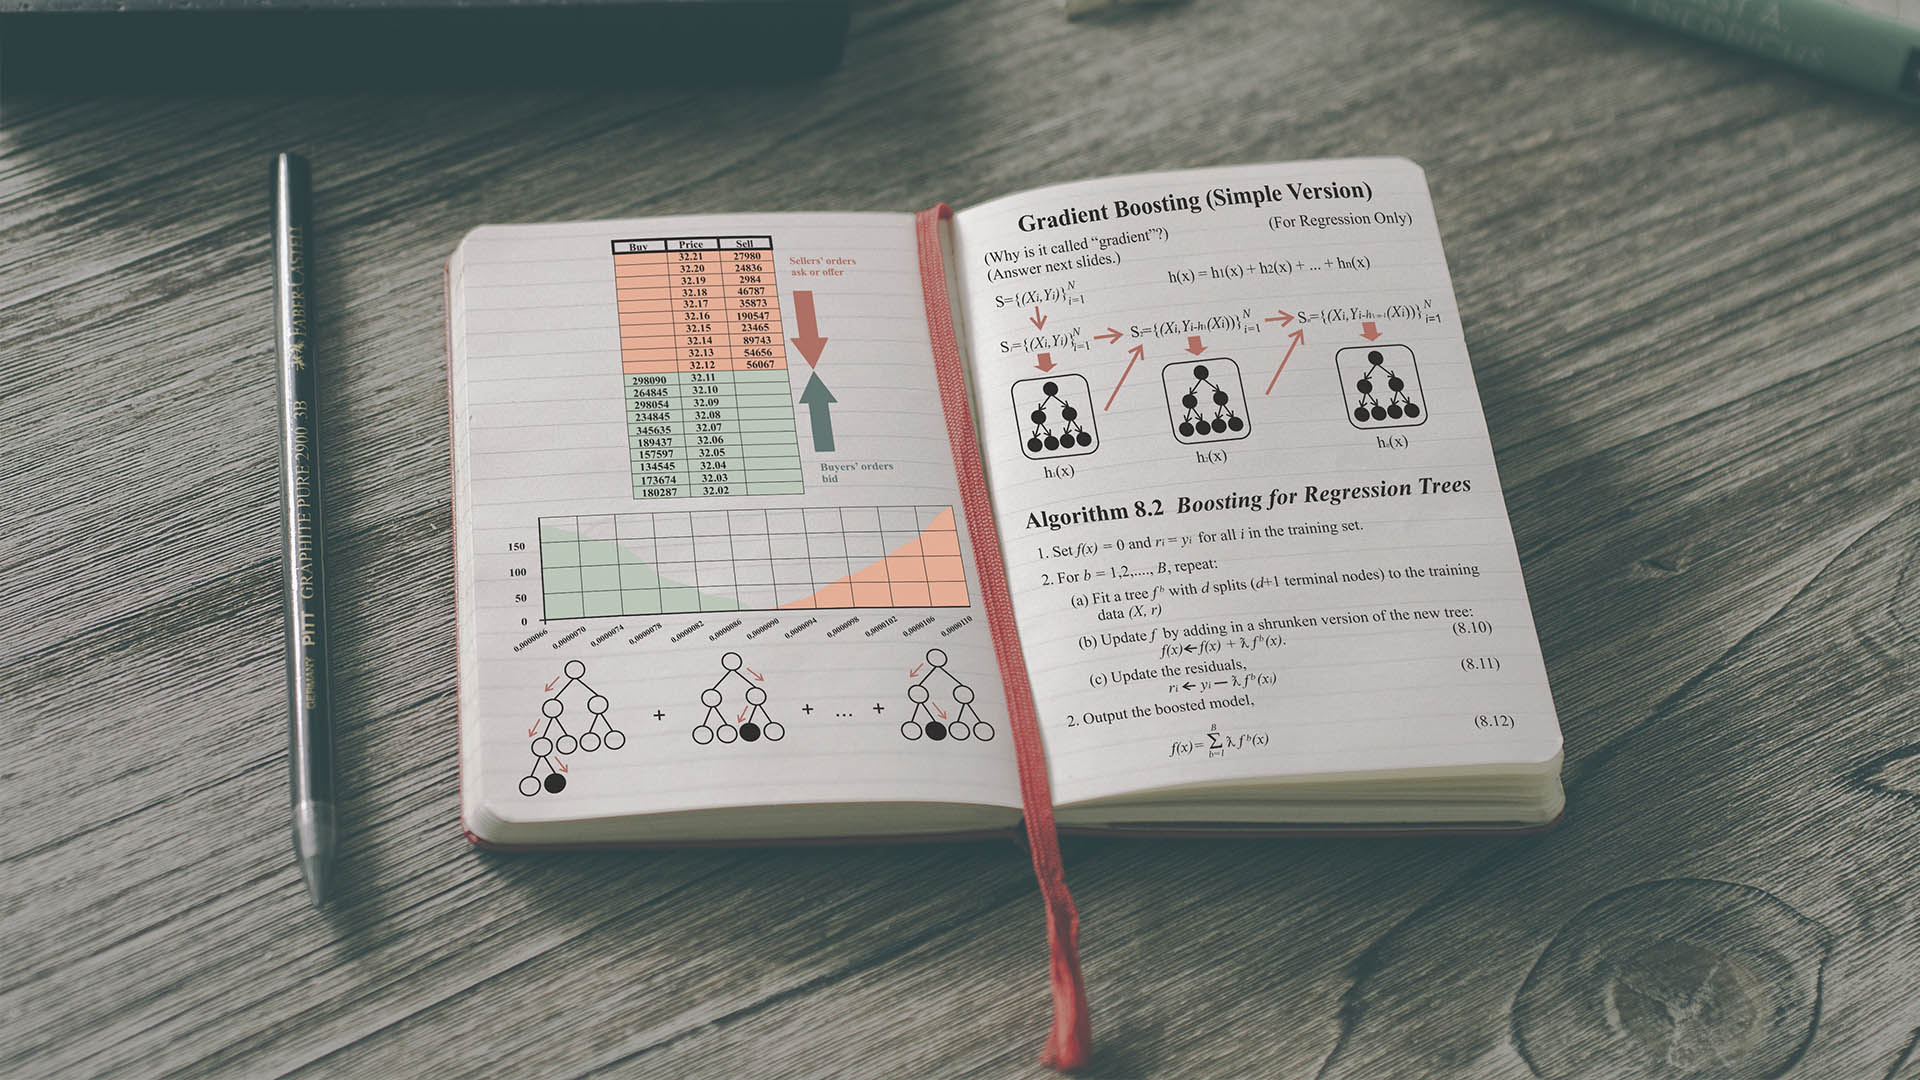 GERMANY PITT GRAPHITE PURE 2900 3B FABER-CASTELL
Buy Price Sell
32.21 27980
32.20 24836
32.19 2984
32.18 46787
32.17 35873
32.16 190547
32.15 23465
32.14 89743
32.13 54656
32.12 56067
298090 32.11
264845 32.10
298054 32.09
234845 32.08
345635 32.07
189437 32.06
157597 32.05
134545 32.04
173674 32.03
180287 32.02
Sellers' orders
ask or offer
Buyers' orders
bid
150
100
50
0
0,0000066 0,0000070 0,0000074 0,0000078 0,0000082 0,0000086 0,0000090 0,0000094 0,0000098 0,0000102 0,0000106 0,0000110
+ + ... +
Gradient Boosting (Simple Version)
(For Regression Only)
(Why is it called “gradient”?)
(Answer next slides.)
h(x) = h1(x) + h2(x) + ... + hn(x)
S={(Xi,Yi)}ᴺi=1
S₁={(Xi,Yi)}ᴺi=1 S₂={(Xi,Yi-h₁(Xi))}ᴺi=1 Sₙ={(Xi,Yi-hₙ₋₁(Xi))}ᴺi=1
h₁(x) h₂(x) hₙ(x)
Algorithm 8.2 Boosting for Regression Trees
1. Set f(x) = 0 and ri = yi for all i in the training set.
2. For b = 1,2,...., B, repeat:
(a) Fit a tree fᵇ with d splits (d+1 terminal nodes) to the training
data (X, r)
(b) Update f by adding in a shrunken version of the new tree:
f(x)←f(x) + λfᵇ(x). (8.10)
(c) Update the residuals, (8.11)
ri ← yi — λfᵇ(xi)
2. Output the boosted model,
f(x)= Σᴮb=1 λfᵇ(x) (8.12)